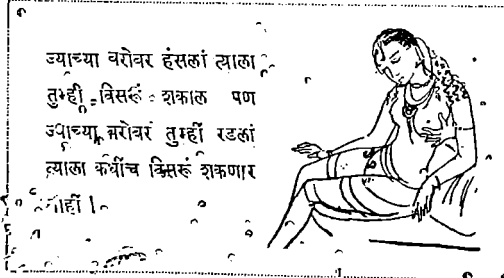 ज्याच्या बरोबर हंसलां त्याला
तुम्ही विसरूं शकाल पण
ज्याच्या बरोबर तुम्हीं रडलां
त्याला कधींच विसरूं शकणार
नाहीं ।